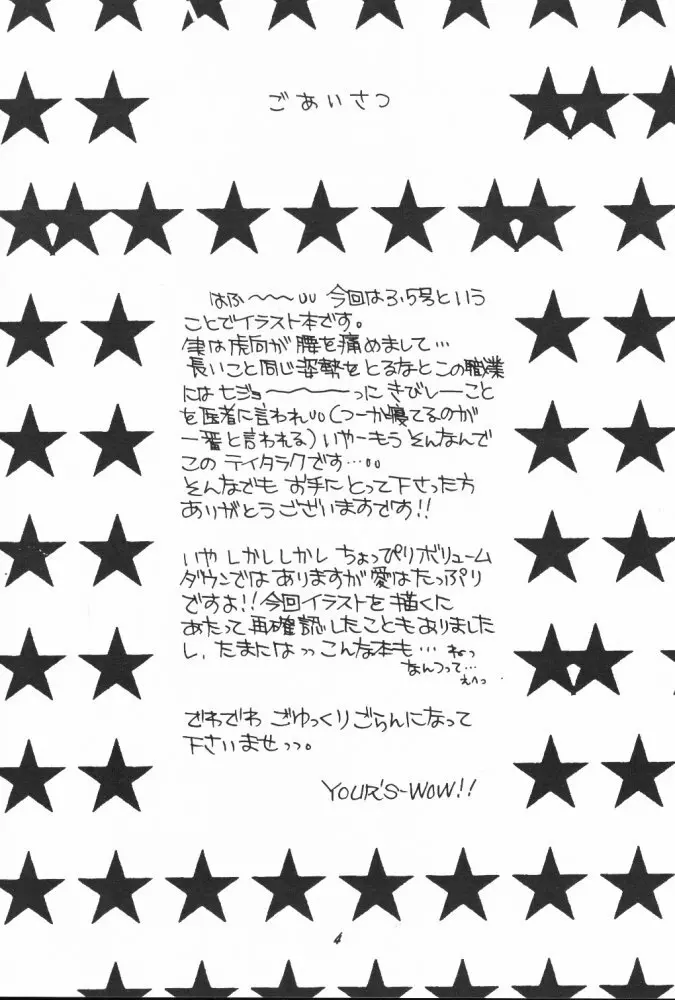 ごあいさつ
はふ〜〜〜〜υυ 今回は3.5号という
ことでイラスト本です。
実は虎向が腰を痛めまして…
長いこと同じ姿勢をとるなとこの職業
には七ジョ〜〜〜〜〜っにきびしーこと
を医者に言われυυ(つーか寝てるのが
一番と言われる)いやーもうそんなんで
このテイタラクです…υυ
そんなでもお手にとって下さった方
ありがとうございますです!!
いやしかししかしちょっぴりボリューム
ダウンではありますが愛はたっぷり
ですよ!!今回イラストを描くに
あたって再確認したこともありました
し、たまにはっっこんな本も… ねっ
なんつって…
えへっ
でわでわごゆっくりごらんになって
下さいませっっ。
YOUR'S-WOW!!
4